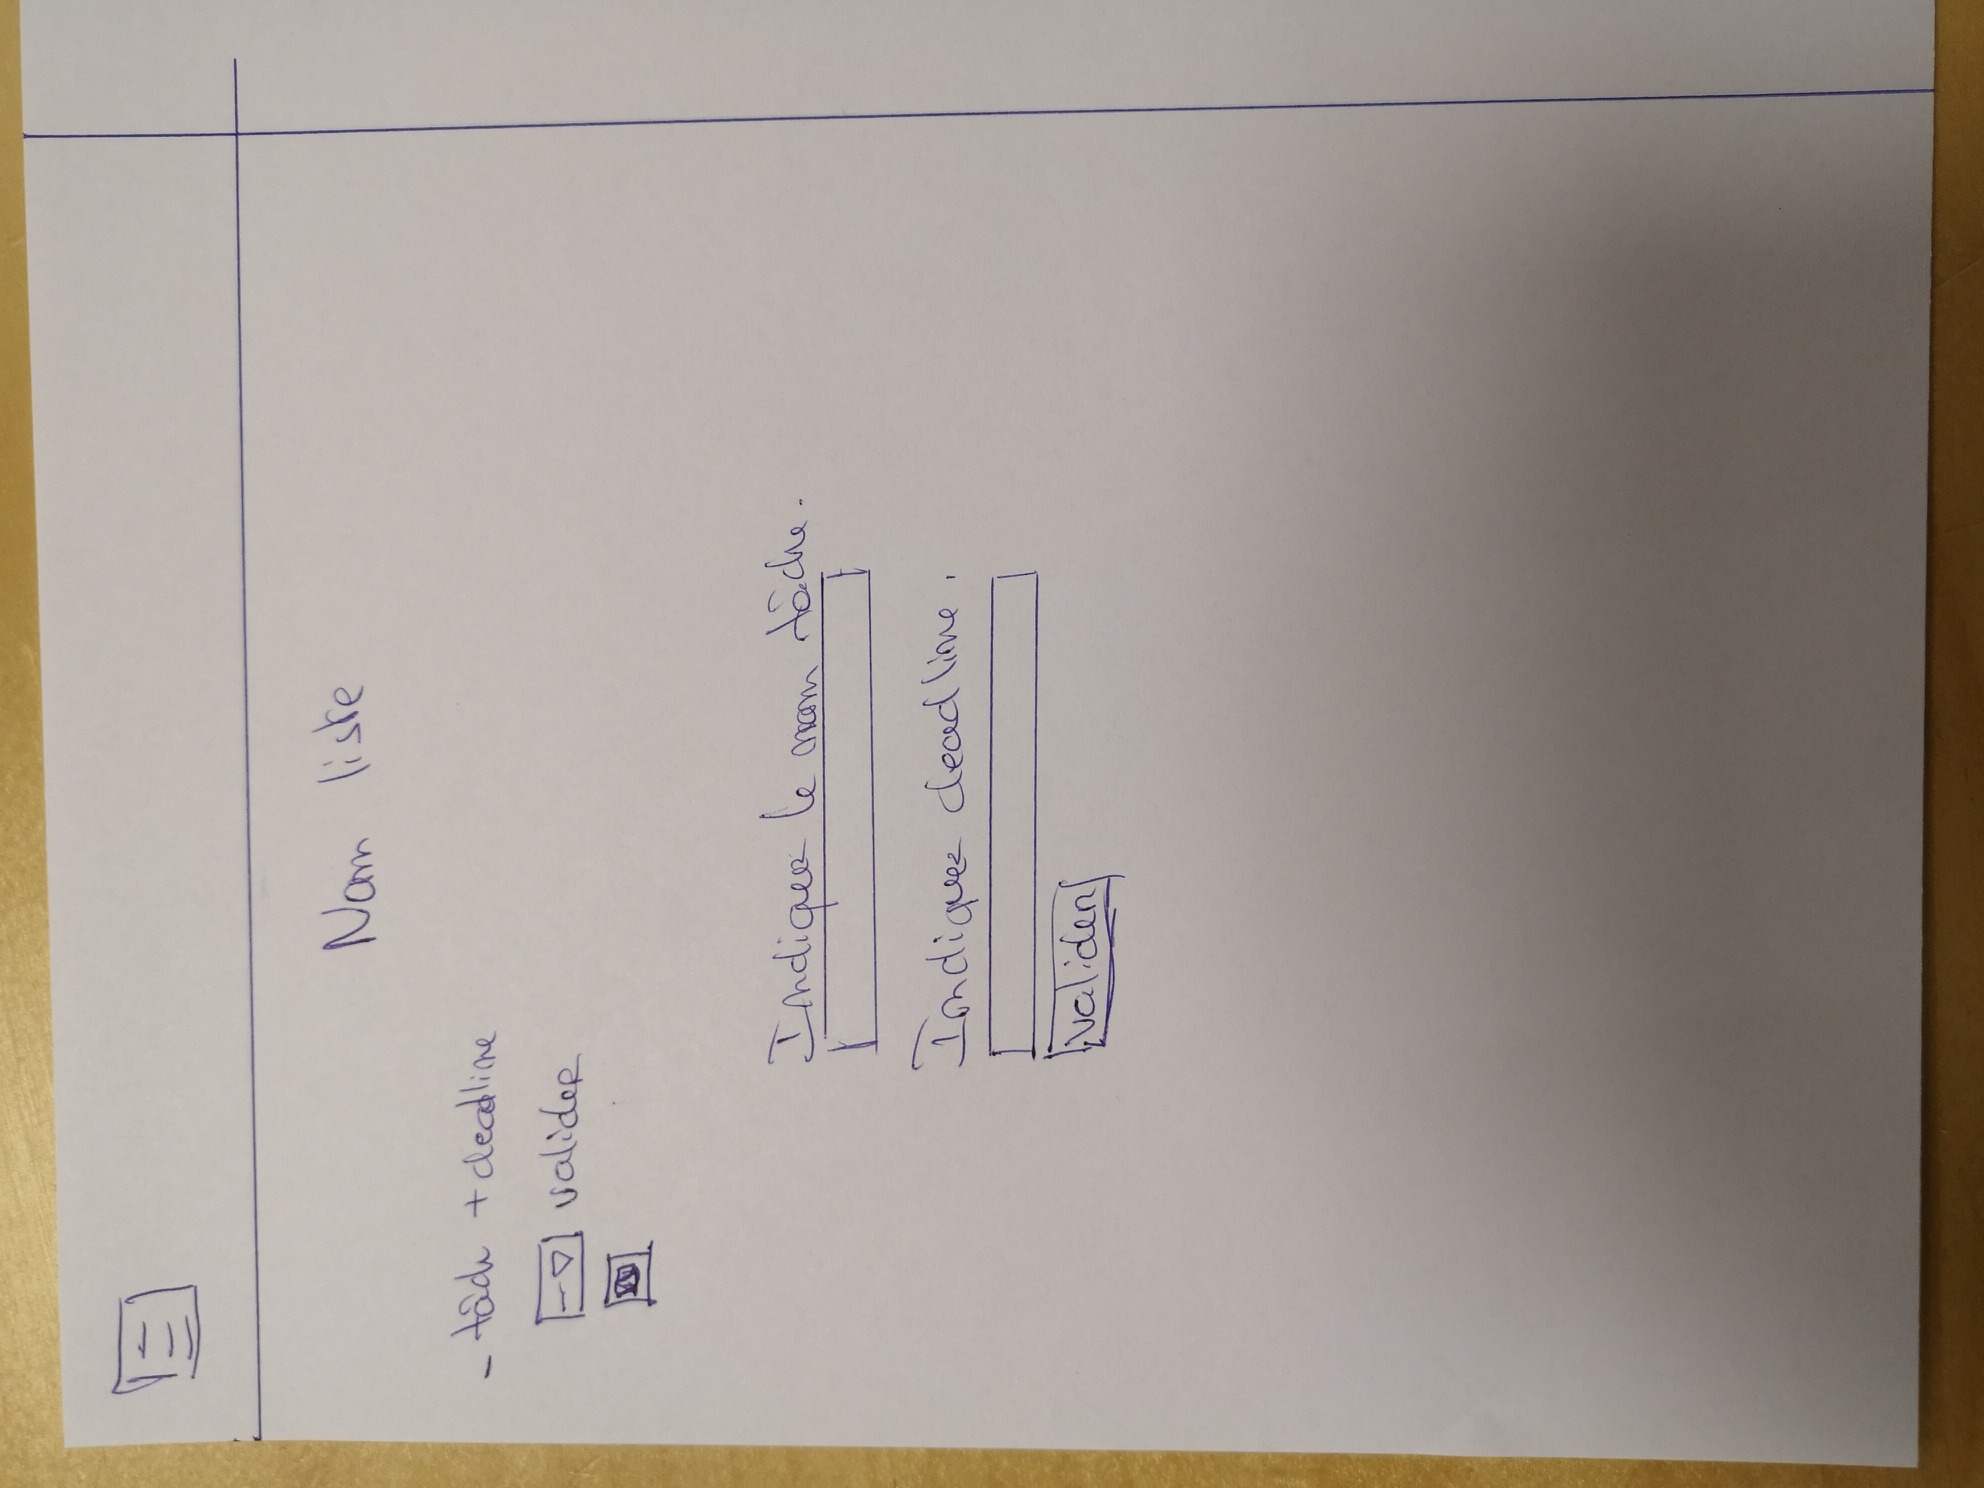 Nom liste
- tâche + deadline
valider
Indiquez le nom tâche.
Indiquez deadline.
valider